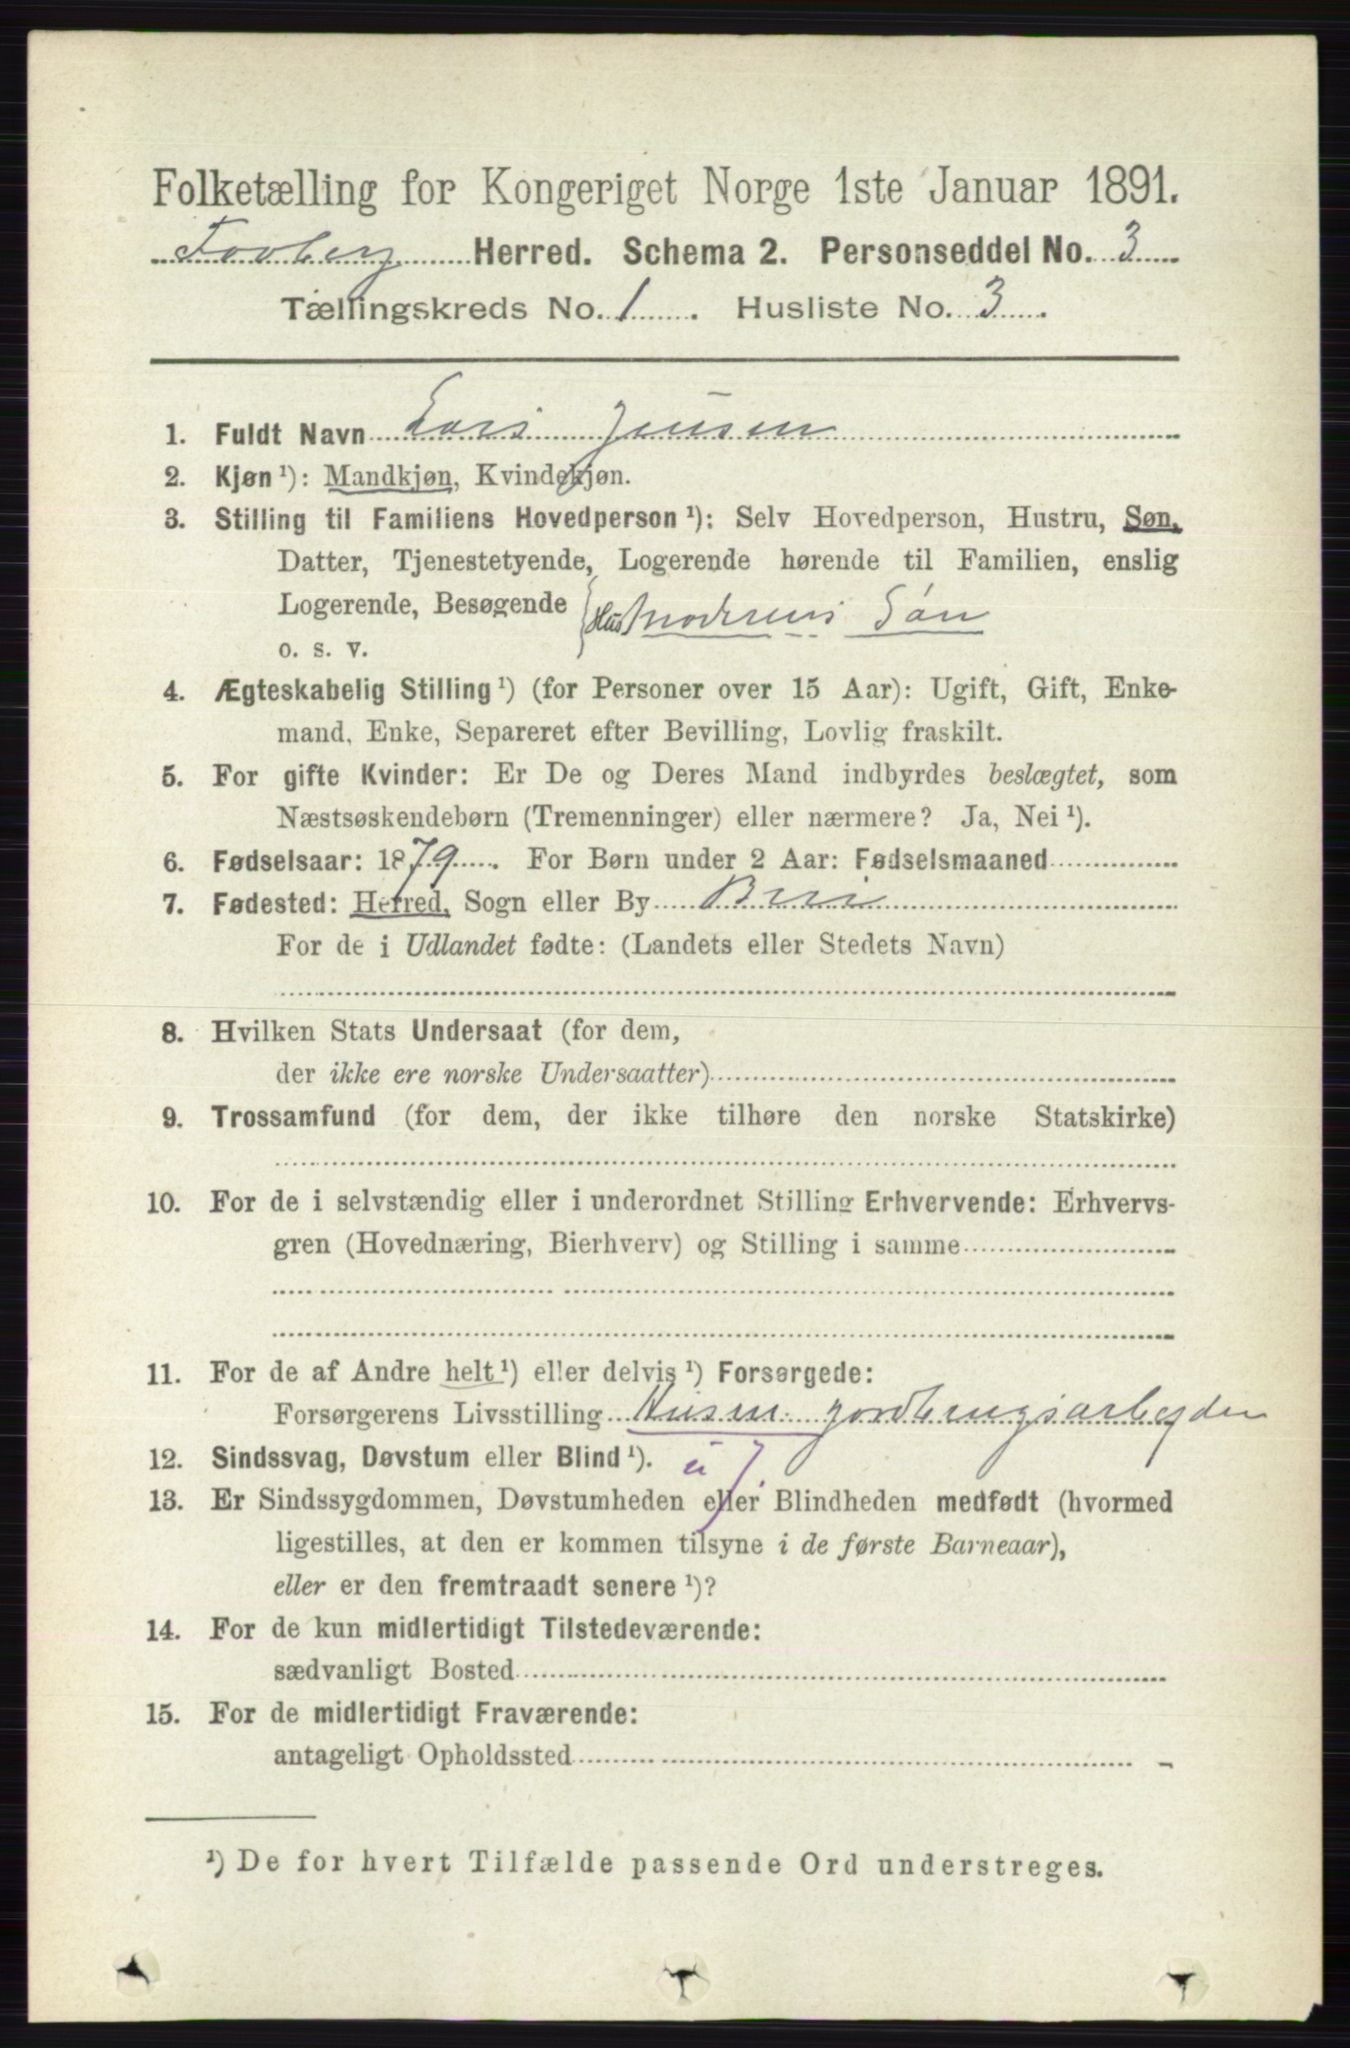 Folketælling for Kongeriget Norge 1ste Januar 1891.
Faaberg Herred. Schema 2. Personseddel No. 3
Tællingskreds No. 1. Husliste No. 3.
1. Fuldt Navn Lars Jensen
2. Kjøn ¹): Mandkjøn, Kvindekjøn.
3. Stilling til Familiens Hovedperson ¹): Selv Hovedperson, Hustru, Søn,
Datter, Tjenestetyende, Logerende hørende til Familien, enslig
Logerende, Besøgende Husmoderens Søn
o. s. v.
4. Ægteskabelig Stilling ¹) (for Personer over 15 Aar): Ugift, Gift, Enke-
mand, Enke, Separeret efter Bevilling, Lovlig fraskilt.
5. For gifte Kvinder: Er De og Deres Mand indbyrdes beslægtet, som
Næstsøskendebørn (Tremenninger) eller nærmere? Ja, Nei ¹).
6. Fødselsaar: 1879. For Børn under 2 Aar: Fødselsmaaned
7. Fødested: Herred, Sogn eller By Biri
For de i Udlandet fødte: (Landets eller Stedets Navn)
8. Hvilken Stats Undersaat (for dem,
der ikke ere norske Undersaatter)
9. Trossamfund (for dem, der ikke tilhøre den norske Statskirke)
10. For de i selvstændig eller i underordnet Stilling Erhvervende: Erhvervs-
gren (Hovednæring, Bierhverv) og Stilling i samme
11. For de af Andre helt ¹) eller delvis ¹) Forsørgede:
Forsørgerens Livsstilling Husm. jordbrugsarbeyder
12. Sindssvag, Døvstum eller Blind ¹).
13. Er Sindssygdommen, Døvstumheden eller Blindheden medfødt (hvormed
ligestilles, at den er kommen tilsyne i de første Barneaar),
eller er den fremtraadt senere ¹)?
14. For de kun midlertidigt Tilstedeværende:
sædvanligt Bosted
15. For de midlertidigt Fraværende:
antageligt Opholdssted
¹) De for hvert Tilfælde passende Ord understreges.